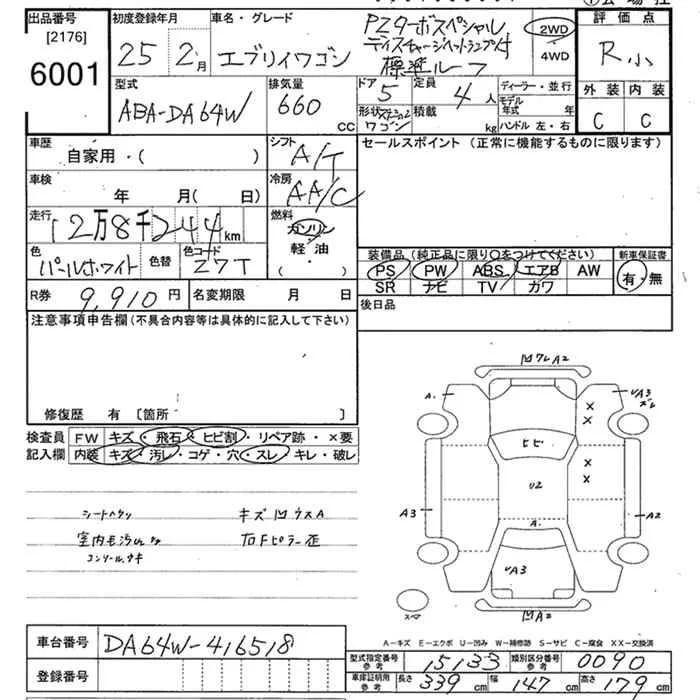 出品番号 初度登録年月 車名・グレード PZターボスペシャル 評価点
[2176] ディスチャージヘッドランプ付 2WD
6001 25年 2月 エブリイワゴン 標準ルーフ 4WD R小
型式 排気量 ドア 定員 ディーラー・並行 外装 内装
ABA-DA64W 660 CC 5 4人 モデル年式 年 C C
形状 ステーションワゴン 積載 kg ハンドル 左・右
車歴 シフト セールスポイント(正常に機能するものに限ります)
自家用・( ) A/T
車検 冷房
年 月( 日) AA/C
走行 燃料
12万8千244km ガソリン
軽油
・( )
色 色替 色コード 装備品(純正品に限り○をつけてください) 新車保証書
パールホワイト Z7T PS PW ABS エアB AW 有・無
SR ナビ TV カワ
R券 9,910円 名変期限 月 日 後日品
注意事項申告欄(不具合内容等は具体的に記入して下さい)
修復歴 有 [箇所 ]
検査員 FW キズ・飛石・ヒビ割・リペア跡・×要
記入欄 内装 キズ・汚レ・コゲ・穴・スレ・キレ・破レ
凹フレA2
A. UA3
ズレ
× ×
ヒビ
× ×
U2
A3 A2
A.
UA3
凹A2
スマ
シートヘタリ キズ凹ウスA
室内毛汚レ 右Fピラー歪
コンソールキキ
車台番号 DA64W-416518 A-キズ E-エクボ U-凹み W-補修跡 S-サビ C-腐食 XX-交換済
型式指定番号 参考 15133 類別区分番号 参考 0090
登録番号 車庫証明用 参考 長さ 339cm 幅 147cm 高さ 179cm